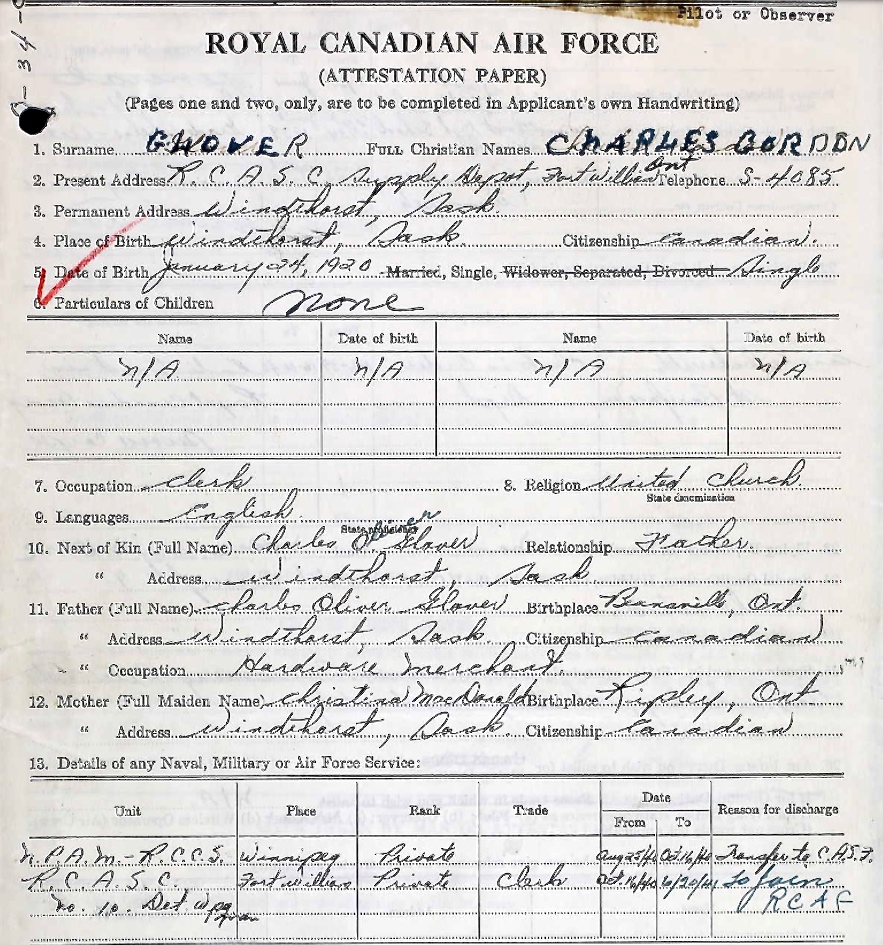 Pilot or Observer
ROYAL CANADIAN AIR FORCE
(ATTESTATION PAPER)
(Pages one and two, only, are to be completed in Applicant's own Handwriting)
1. Surname GLOVER FULL Christian Names CHARLES GORDON
2. Present Address R.C.A.S.C. Supply Depot, Fort William Ont Telephone S-4085
3. Permanent Address Windthorst, Sask.
4. Place of Birth Windthorst, Sask. Citizenship Canadian.
5. Date of Birth January 24, 1920 Married, Single, Widower, Separated, Divorced Single
6. Particulars of Children None
Name Date of birth Name Date of birth
N/A N/A N/A N/A
7. Occupation Clerk 8. Religion United Church
State denomination
9. Languages English
State proficiency
10. Next of Kin (Full Name) Charles O. Oliver Glover Relationship Father.
" Address Windthorst, Sask.
11. Father (Full Name) Charles Oliver Glover Birthplace Beamsville, Ont.
" Address Windthorst, Sask. Citizenship Canadian
" Occupation Hardware Merchant.
12. Mother (Full Maiden Name) Christina MacDonald Birthplace Ripley, Ont
" Address Windthorst, Sask. Citizenship Canadian
13. Details of any Naval, Military or Air Force Service:
Unit Place Rank Trade Date From To Reason for discharge
N.P.A.M.-R.C.C.S. Winnipeg Private Aug 25/40 Oct 16/40 Transfer to C.A.S.F.
R.C.A.S.C. Fort William Private Clerk Oct. 16/40 6/20/41 To join
No. 10. Det. Wpg RCAF